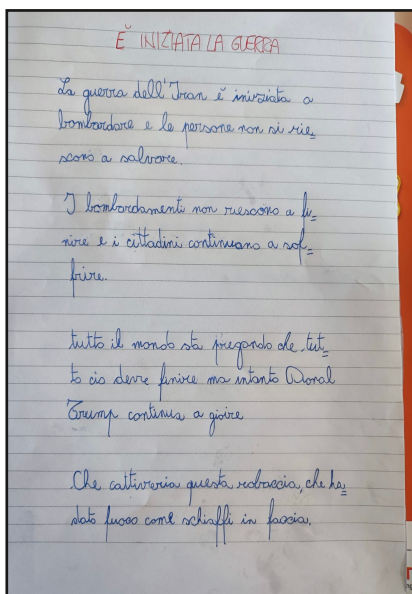 È INIZIATA LA GUERRA
La guerra dell'Iran è iniziata a
bombardare e le persone non si rie=
scono a salvare.
I bombardamenti non riescono a fi=
nire e i cittadini continuano a sof=
frire.
tutto il mondo sta pregando che tut=
to ciò deve finire ma intanto Donal
Trump continua a gioire
Che cattiveria questa robaccia, che ha=
dato fuoco come schiaffi in faccia.